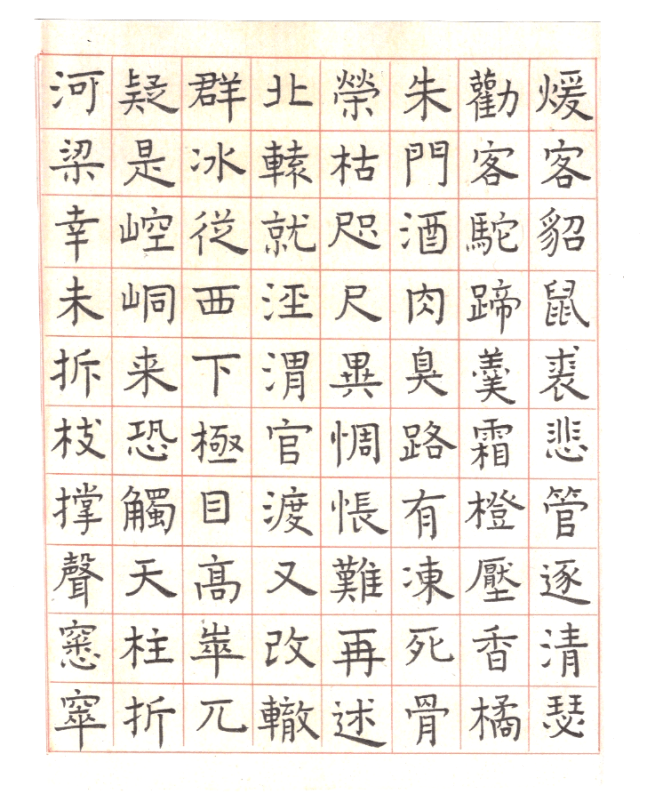 煖客貂鼠裘悲管逐清瑟
勸客駝蹄羹霜橙壓香橘
朱門酒肉臭路有凍死骨
榮枯咫尺異惆悵難再述
北轅就涇渭官渡又改轍
群冰從西下極目高崒兀
疑是崆峒来恐觸天柱折
河梁幸未拆枝撑聲窸窣